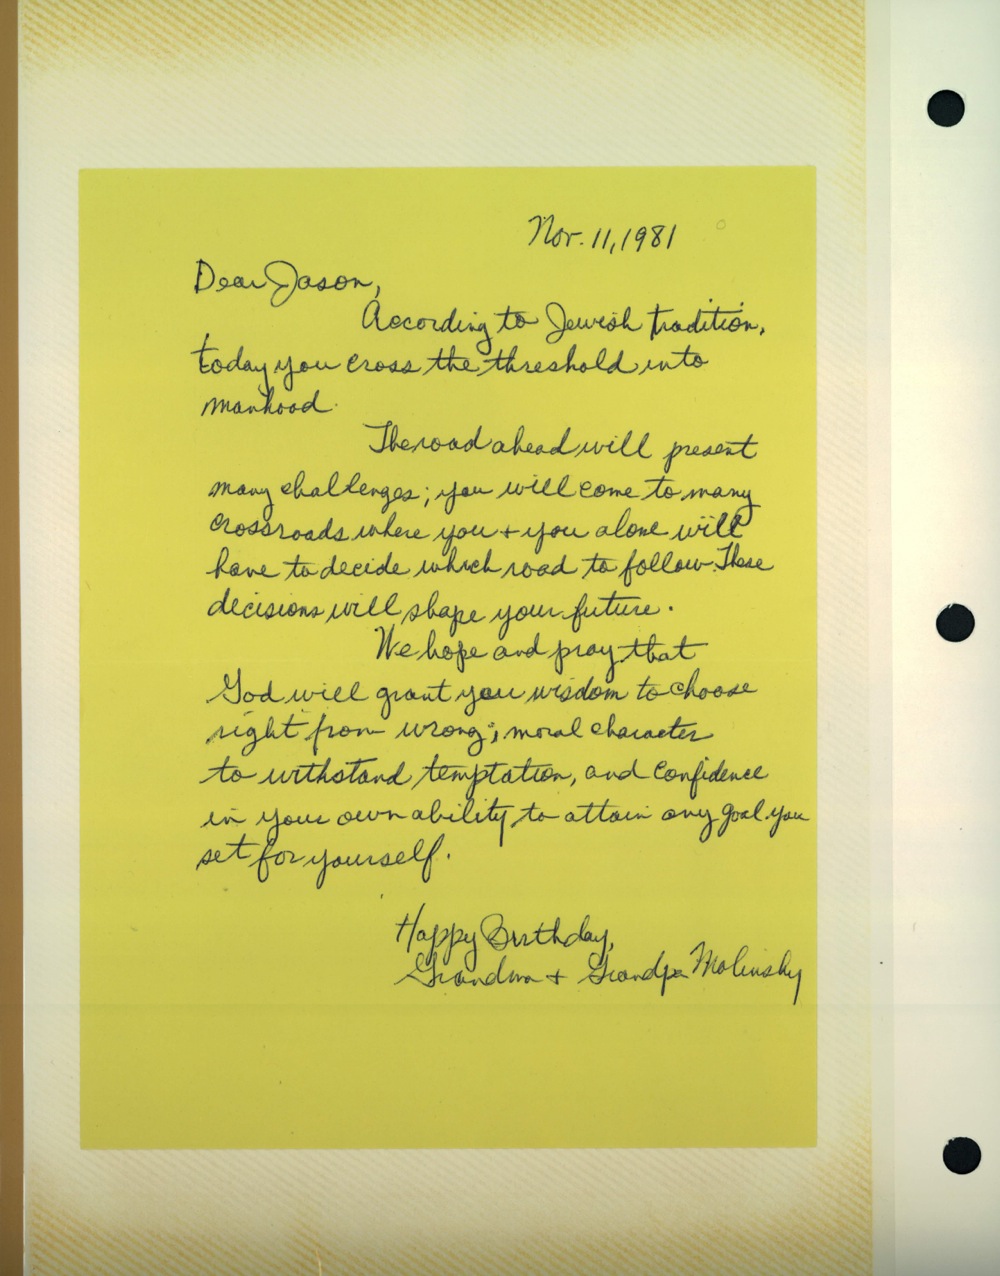 Nov. 11, 1981
Dear Jason,
According to Jewish tradition,
today you cross the threshold into
manhood.
The road ahead will present
many challenges; you will come to many
crossroads where you + you alone will
have to decide which road to follow. These
decisions will shape your future.
We hope and pray that
God will grant you wisdom to choose
right from wrong; moral character
to withstand temptation, and confidence
in your own ability to attain any goal you
set for yourself.
Happy Birthday,
Grandma + Grandpa Molinsky